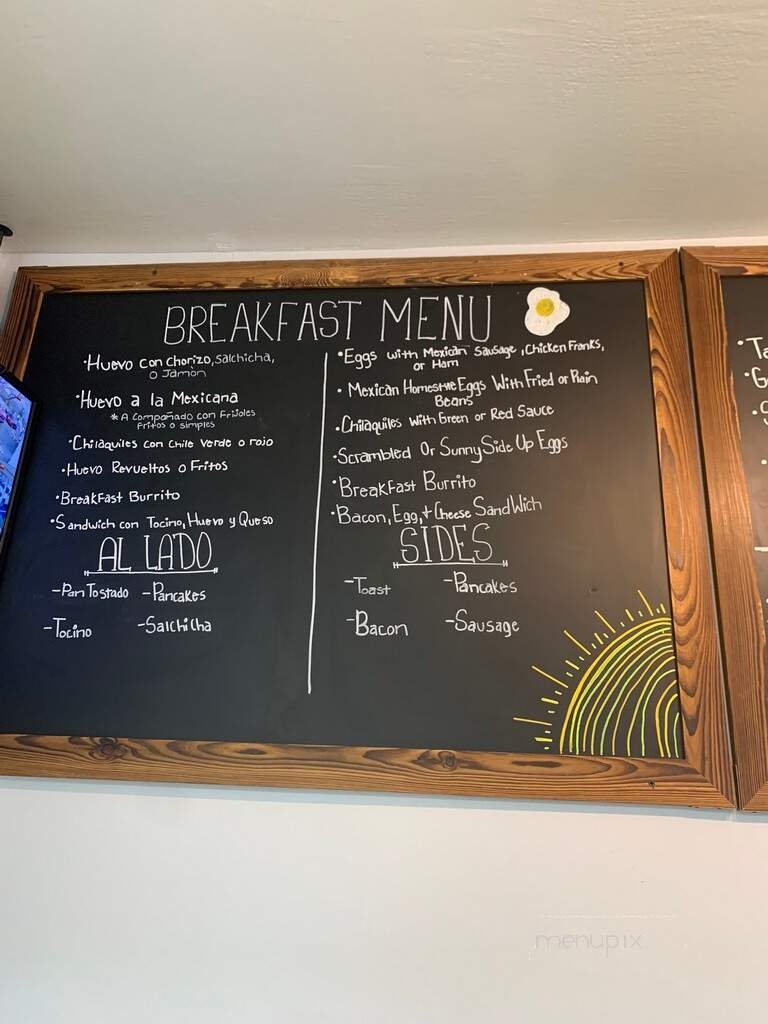 BREAKFAST MENU
• Huevo con Chorizo, Salchicha,
o Jamón
• Huevo a la Mexicana
* A Compañado con Frijoles
Fritos o simples
• Chilaquiles con Chile Verde o rojo
• Huevo Revueltos o Fritos
• Breakfast Burrito
• Sandwich con Tocino, Huevo y Queso
AL LADO
- Pan Tostado - Pancakes
- Tocino - Salchicha
• Eggs with Mexican Sausage, Chicken Franks,
or Ham
• Mexican Homestyle Eggs With Fried or Plain
Beans
• Chilaquiles With Green or Red Sauce
• Scrambled Or Sunny Side Up Eggs
• Breakfast Burrito
• Bacon, Egg, + Cheese Sandwich
SIDES
- Toast - Pancakes
- Bacon - Sausage
menupix